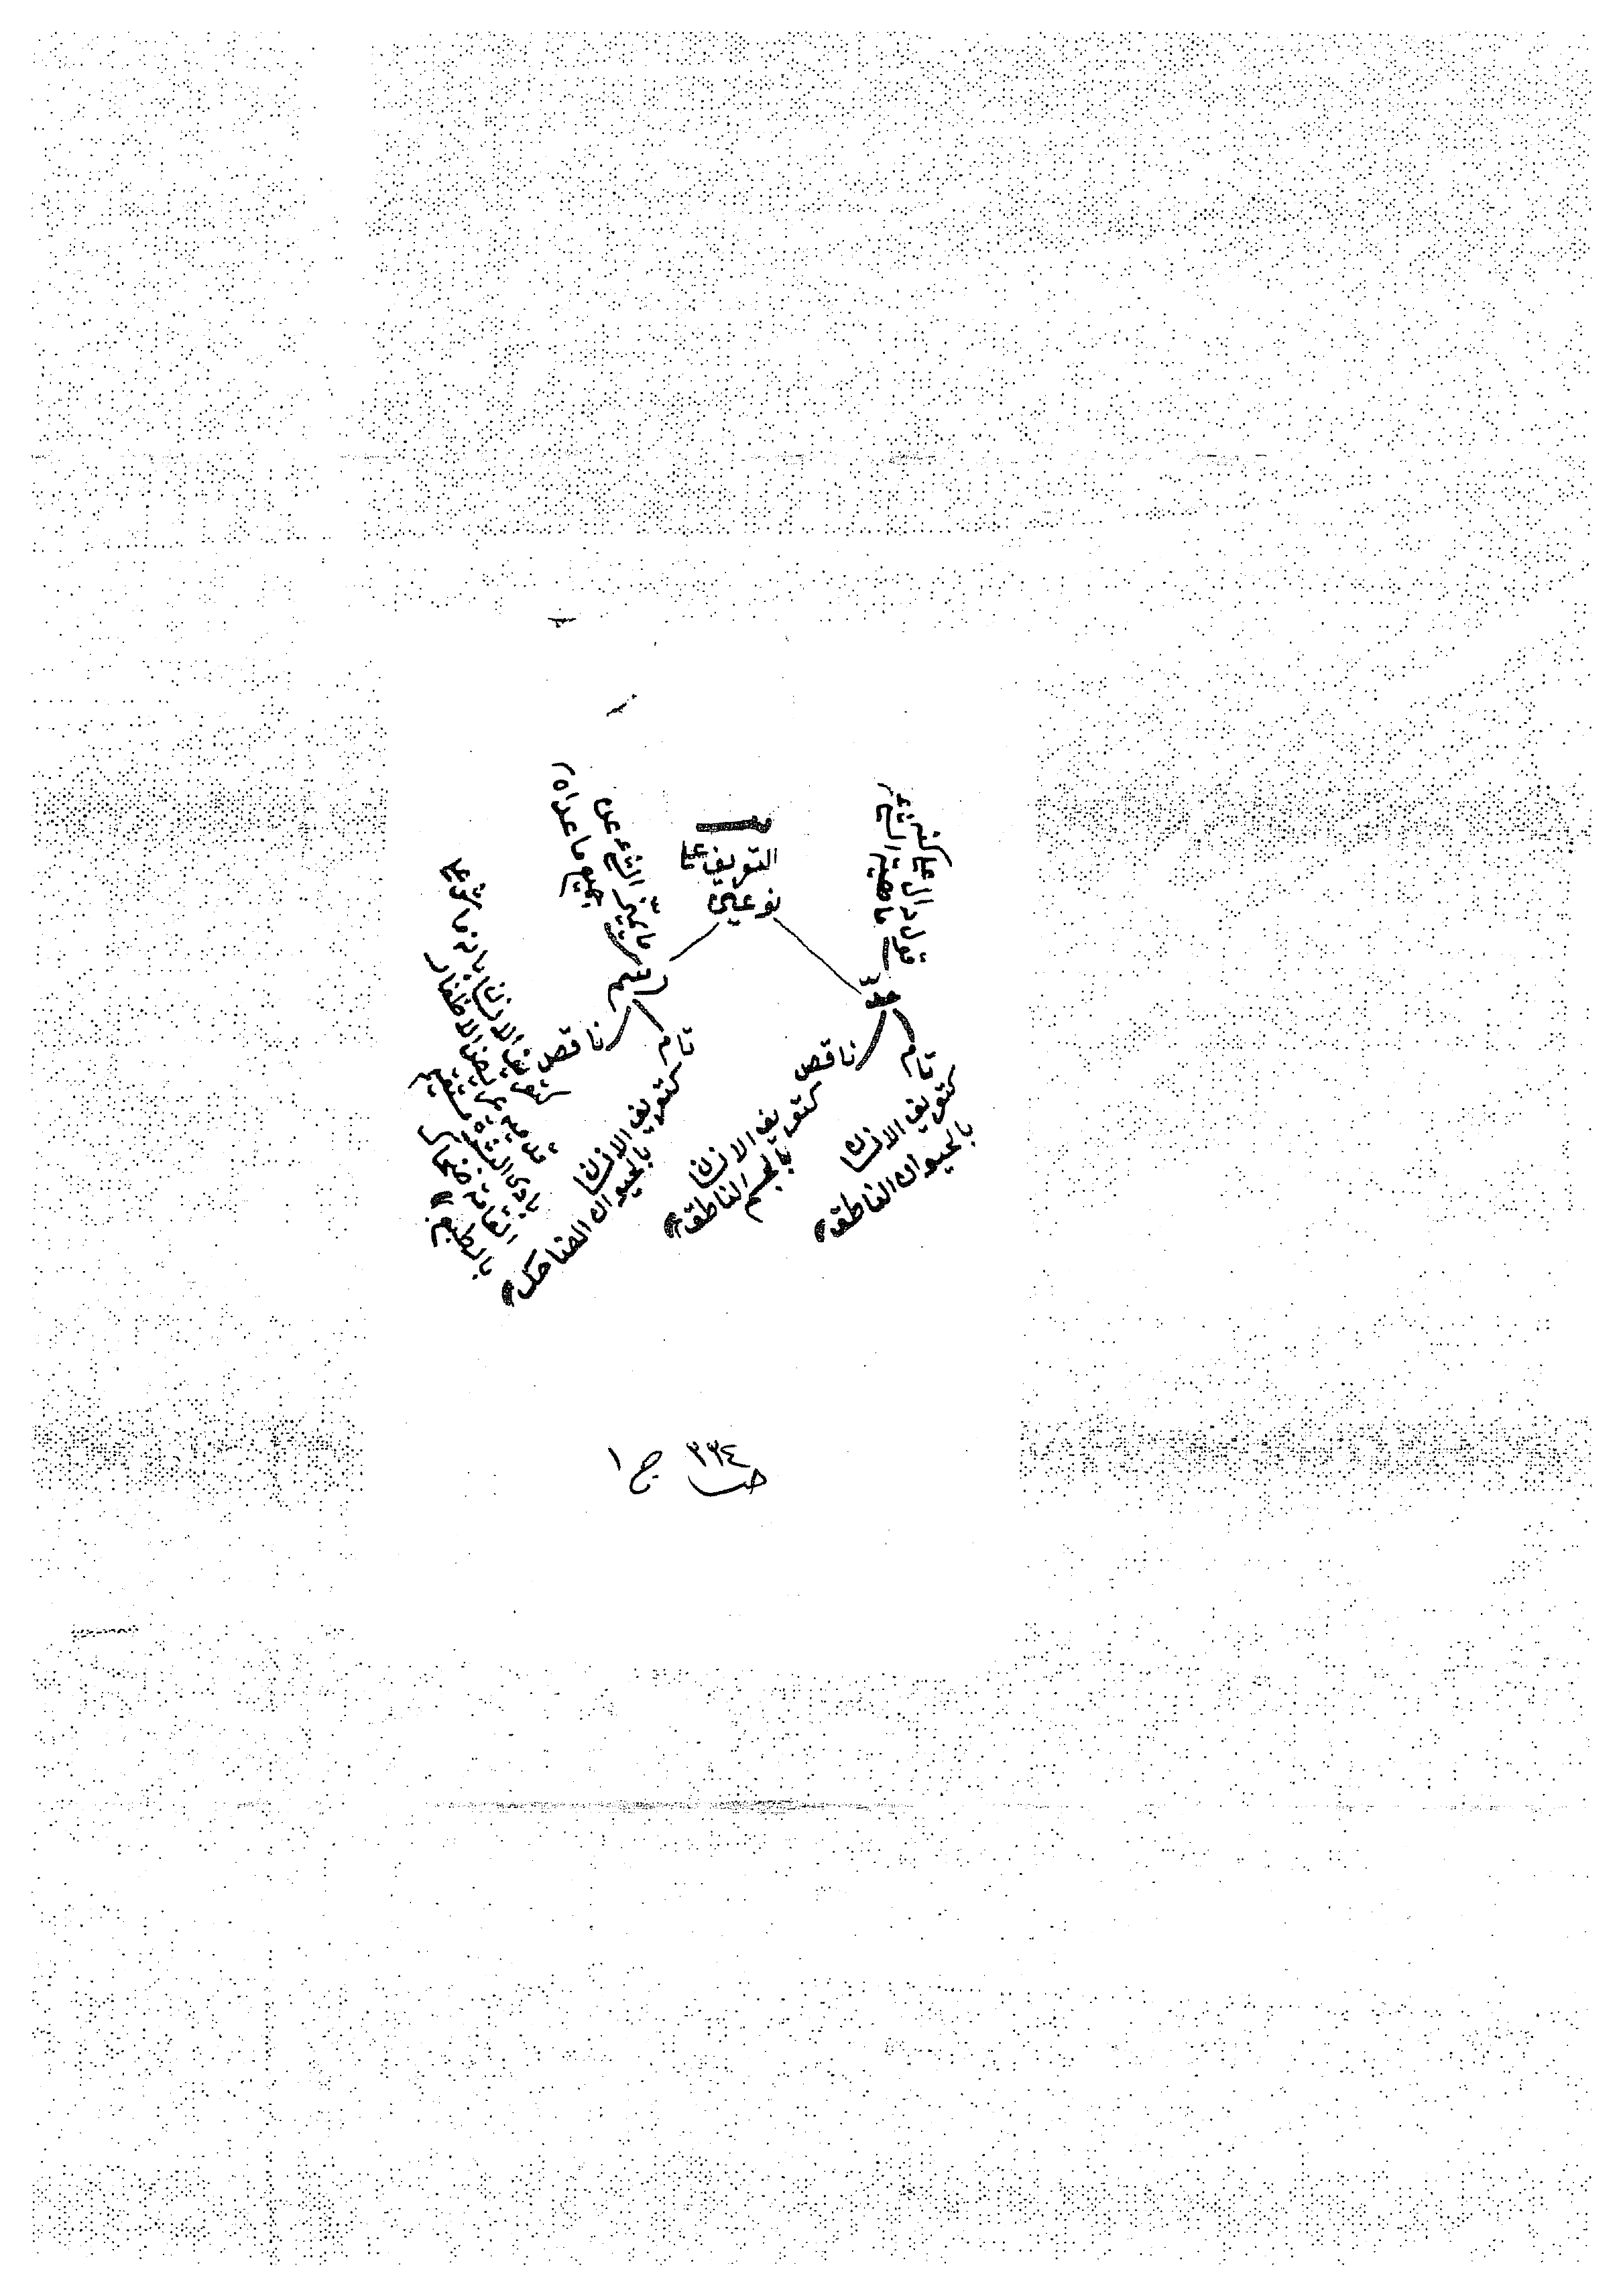 التعريف على
نوعين
حدّ
قول دال على
ماهية الشئ
تام
كتعريف الانسان
بالحيوان الناطق
ناقص
كتعريف الانسان
بالجسم الناطق
رسم
ما يميز الشئ عن
جميع ما عداه
تام
كتعريف الانسان
بالحيوان الضاحك
ناقص
كتعريف الانسان بانه ماش على
قدميه عريض الاظفار
بادى البشرة مستقيم
القامة ضحاك
بالطبع
ص ٣٣٤ ج ١